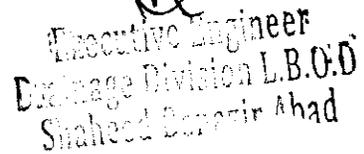 Executive Engineer
Drainage Division L.B.O.D
Shaheed Benazir Abad